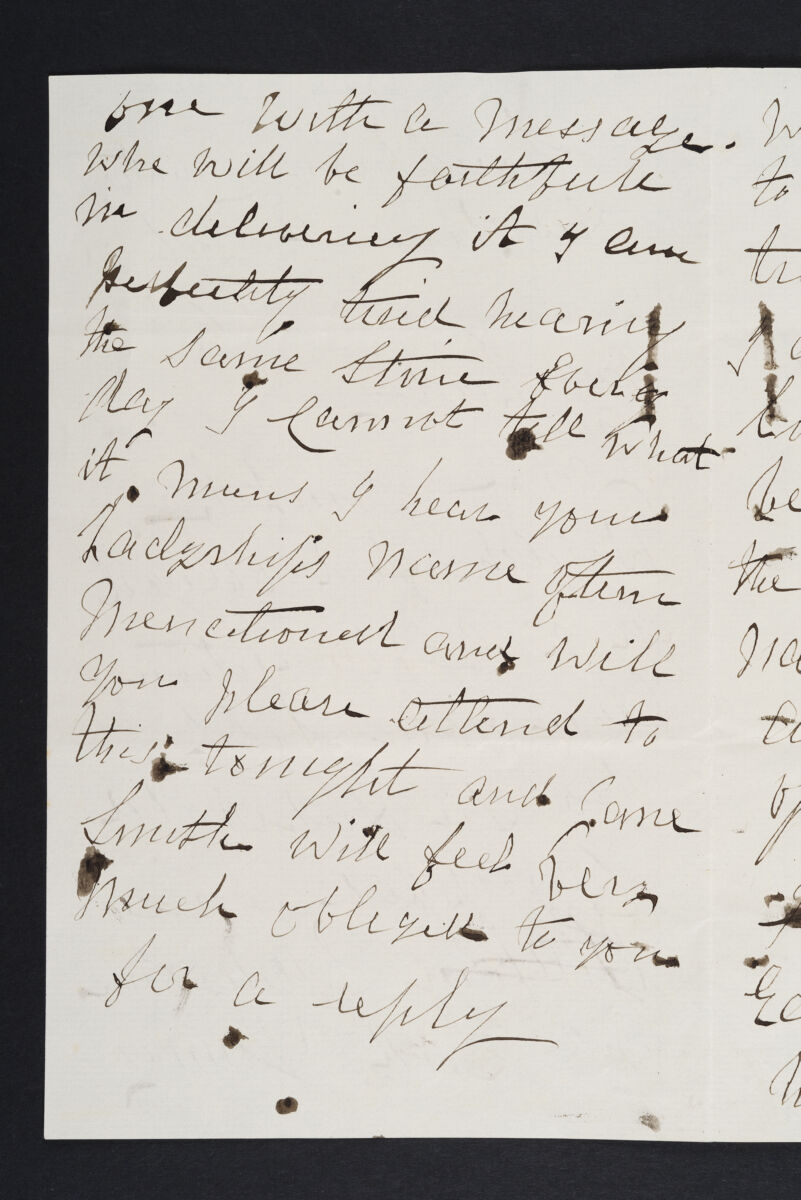 one with a message.
who will be faithfull
in delivering it I am
perfectly tired hearing
the same storie Every
day I cannot tell what
it means I hear your
Ladyships name often
Menctioned and will
you please attend to
this tonight and Jane
Smith will feel very
much obliged to you
for a reply
to
the
be
the